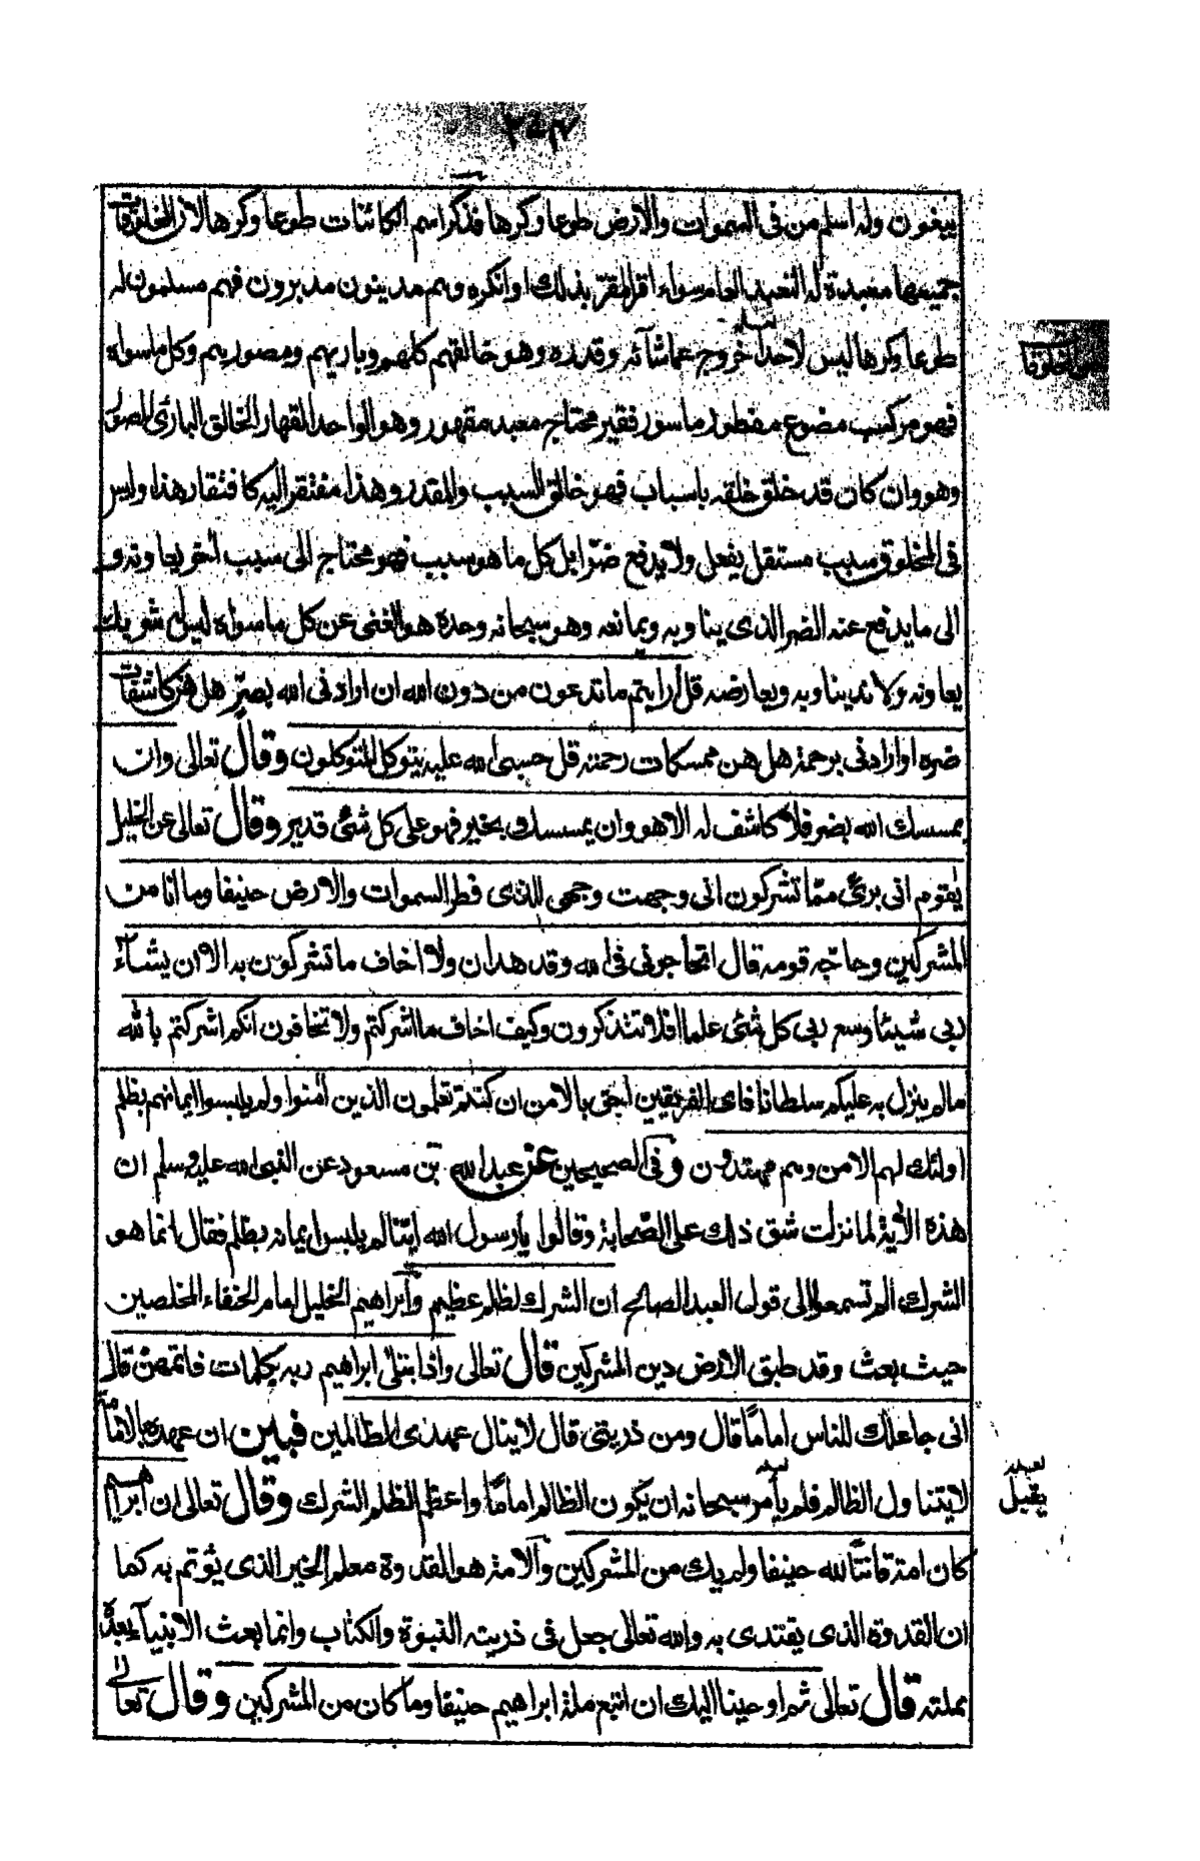 يبغون وله اسلم من فى السموات والارض طوعا وكرها فذكر اسم الكائنات طوعا وكرها لان المخلوقات
جميعها معبدة له التعبد العام سواء اقر المقر بذلك او انكره وهم مدينون مدبرون فهم مسلمون له
طوعا وكرها ليس لاحد خروج عما شآئه وقدره وهو خالقهم كلهم وباريهم ومصوريهم وكل ماسواه
فهو مركب مصنوع مفطور ماسور فقير محتاج معبد مقهور وهو الواحد القهار الخالق البارئ المصور
وهو وان كان قد خلق خلقه باسباب فهو خالق السبب والمقدر وهذا مفتقر اليه كافتقار هذا وليس
فى المخلوق سبب مستقل يفعل ولا يدفع ضرا بل كل ما هو سبب فهو محتاج الى سبب اخر يعاونه و
الى ما يدفع عنه الضر الذى يناوبه ويمانعه وهو سبحانه وحده هو الغنى عن كل ماسواه ليس له شريك
يعاونه ولا ند يناوبه ويعارضه قل أرايتم ما تدعون من دون الله ان ارادنى الله بضر هل هن كاشفات
ضره او ارادنى برحمة هل هن ممسكات رحمته قل حسبى الله عليه يتوكل المتوكلون وقال تعالى وان
يمسسك الله بضر فلا كاشف له الا هو وان يمسسك بخير فهو على كل شئ قدير وقال تعالى عن الخليل
يقوم انى برئ مما تشركون انى وجهت وجهى للذى فطر السموات والارض حنيفا وما انا من
المشركين وحاجه قومه قال اتحاجونى فى الله وقد هدان ولا اخاف ما تشركون به الا ان يشآء
ربى شيئا وسع ربى كل شئ علما افلا تتذكرون وكيف اخاف ما اشركتم ولا تخافون انكم اشركتم بالله
مالم ينزل به عليكم سلطانا فاى الفريقين احق بالامن ان كنتم تعلمون الذين امنوا ولم يلبسوا ايمانهم بظلم
اولئك لهم الامن وهم مهتدون وفى الصحيحين عن عبدالله بن مسعود عن النبى الله عليه وسلم ان
هذه الأية لما نزلت شق ذلك على الصحابة وقالوا يارسول الله اينا لم يلبس ايمانه بظلم فقال انما هو
الشرك الم تسمعوا الى قول العبد الصالح ان الشرك لظلم عظيم وابراهيم الخليل امام الحنفاء المخلصين
حيث بعث وقد طبق الارض دين المشركين قال تعالى واذا بتلى ابراهيم ربه بكلمات فاتمهن قال
انى جاعلك للناس اماما قال ومن ذريتى قال لا ينال عهدى الظالمين فبين ان عهده بالامامة
لا يتناول الظالم فلم يأمر سبحانه ان يكون الظالم اماما واعظم الظلم الشرك وقال تعالى ان ابراهيم
كان امة قانتا لله حنيفا ولم يك من المشركين والامة هو القدوة معلم الخير الذى يؤتم به كما
ان القدوة الذى يقتدى به والله تعالى جعل فى ذريته النبوة والكتاب وانما بعث الانبيآء بعده
بملته قال تعالى ثم اوحينا اليك ان اتبع ملة ابراهيم حنيفا وما كان من المشركين وقال تعالى
يقبل